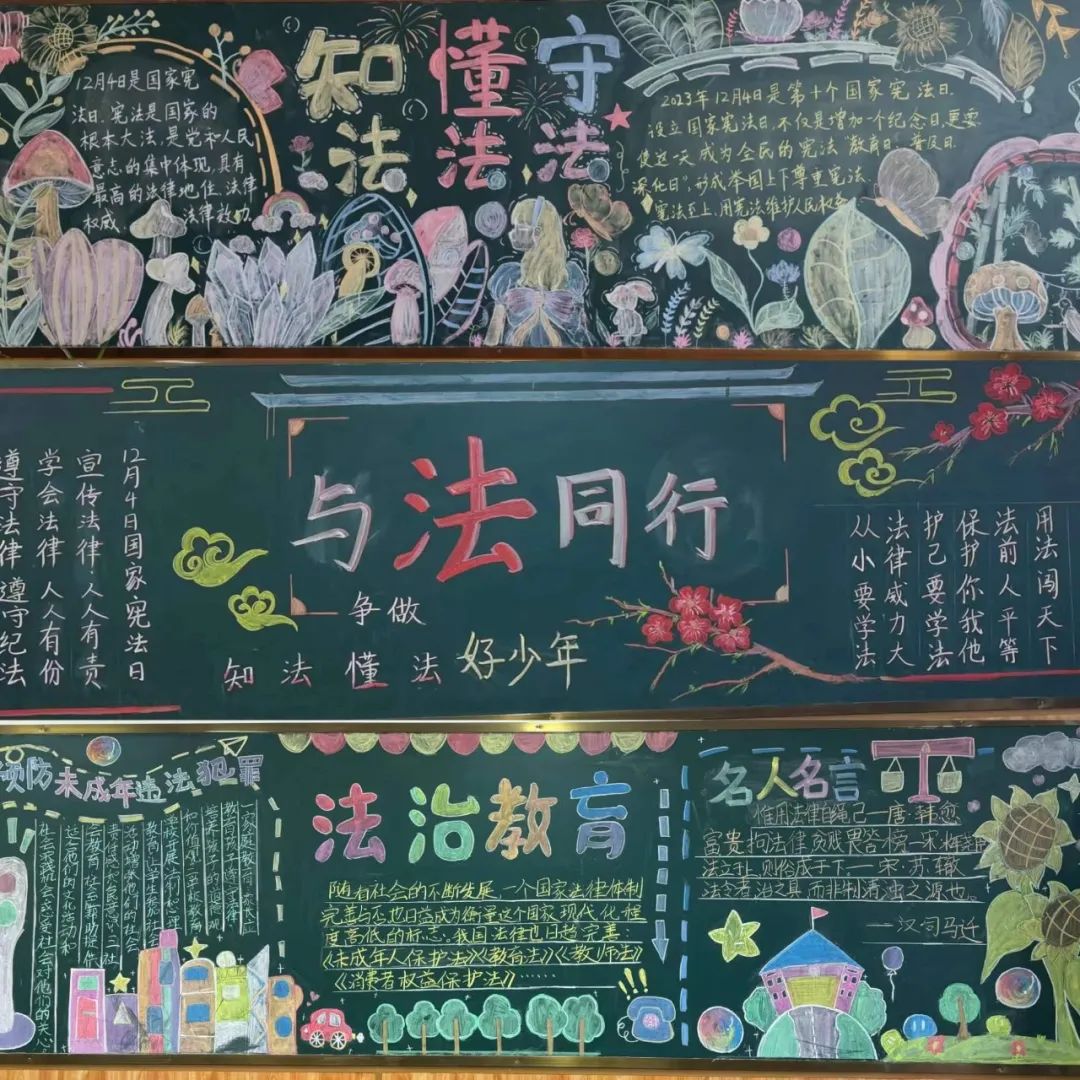 知法 懂法 守法
12月4日是国家宪
法日.宪法是国家的
根本大法,是党和人民
意志的集中体现,具有
最高的法律地位、法律
权威、法律效力.
2023年12月4日是第十个国家宪法日.
设立国家宪法日,不仅是增加一个纪念日,更要
使这一天成为全民的宪法"教育日、普及日、
深化日",形成举国上下尊重宪法、
宪法至上、用宪法维护人民权益
与法同行
争做
知法懂法好少年
12月4日国家宪法日
宣传法律人人有责
学会法律人人有份
遵守法律遵守纪法
用法闯天下
法前人平等
保护你我他
护己要学法
法律威力大
从小要学法
预防未成年违法犯罪
一、家庭教育:家长应
教育孩子遵守法律,
法治教育
随着社会的不断发展,一个国家法律体制
完善与否也日益成为衡量这个国家现代化程
度高低的标志。我国法律也日趋完善:
《未成年人保护法》《教育法》《教师法》
《消费者权益保护法》……
名人名言
惟用法律自绳己—唐·韩愈
富贵拘法律贫贱畏笞榜—宋·
法立于上,则俗成于下.—宋·苏辙
法令者治之具,而非制清浊之源也.
—汉·司马迁